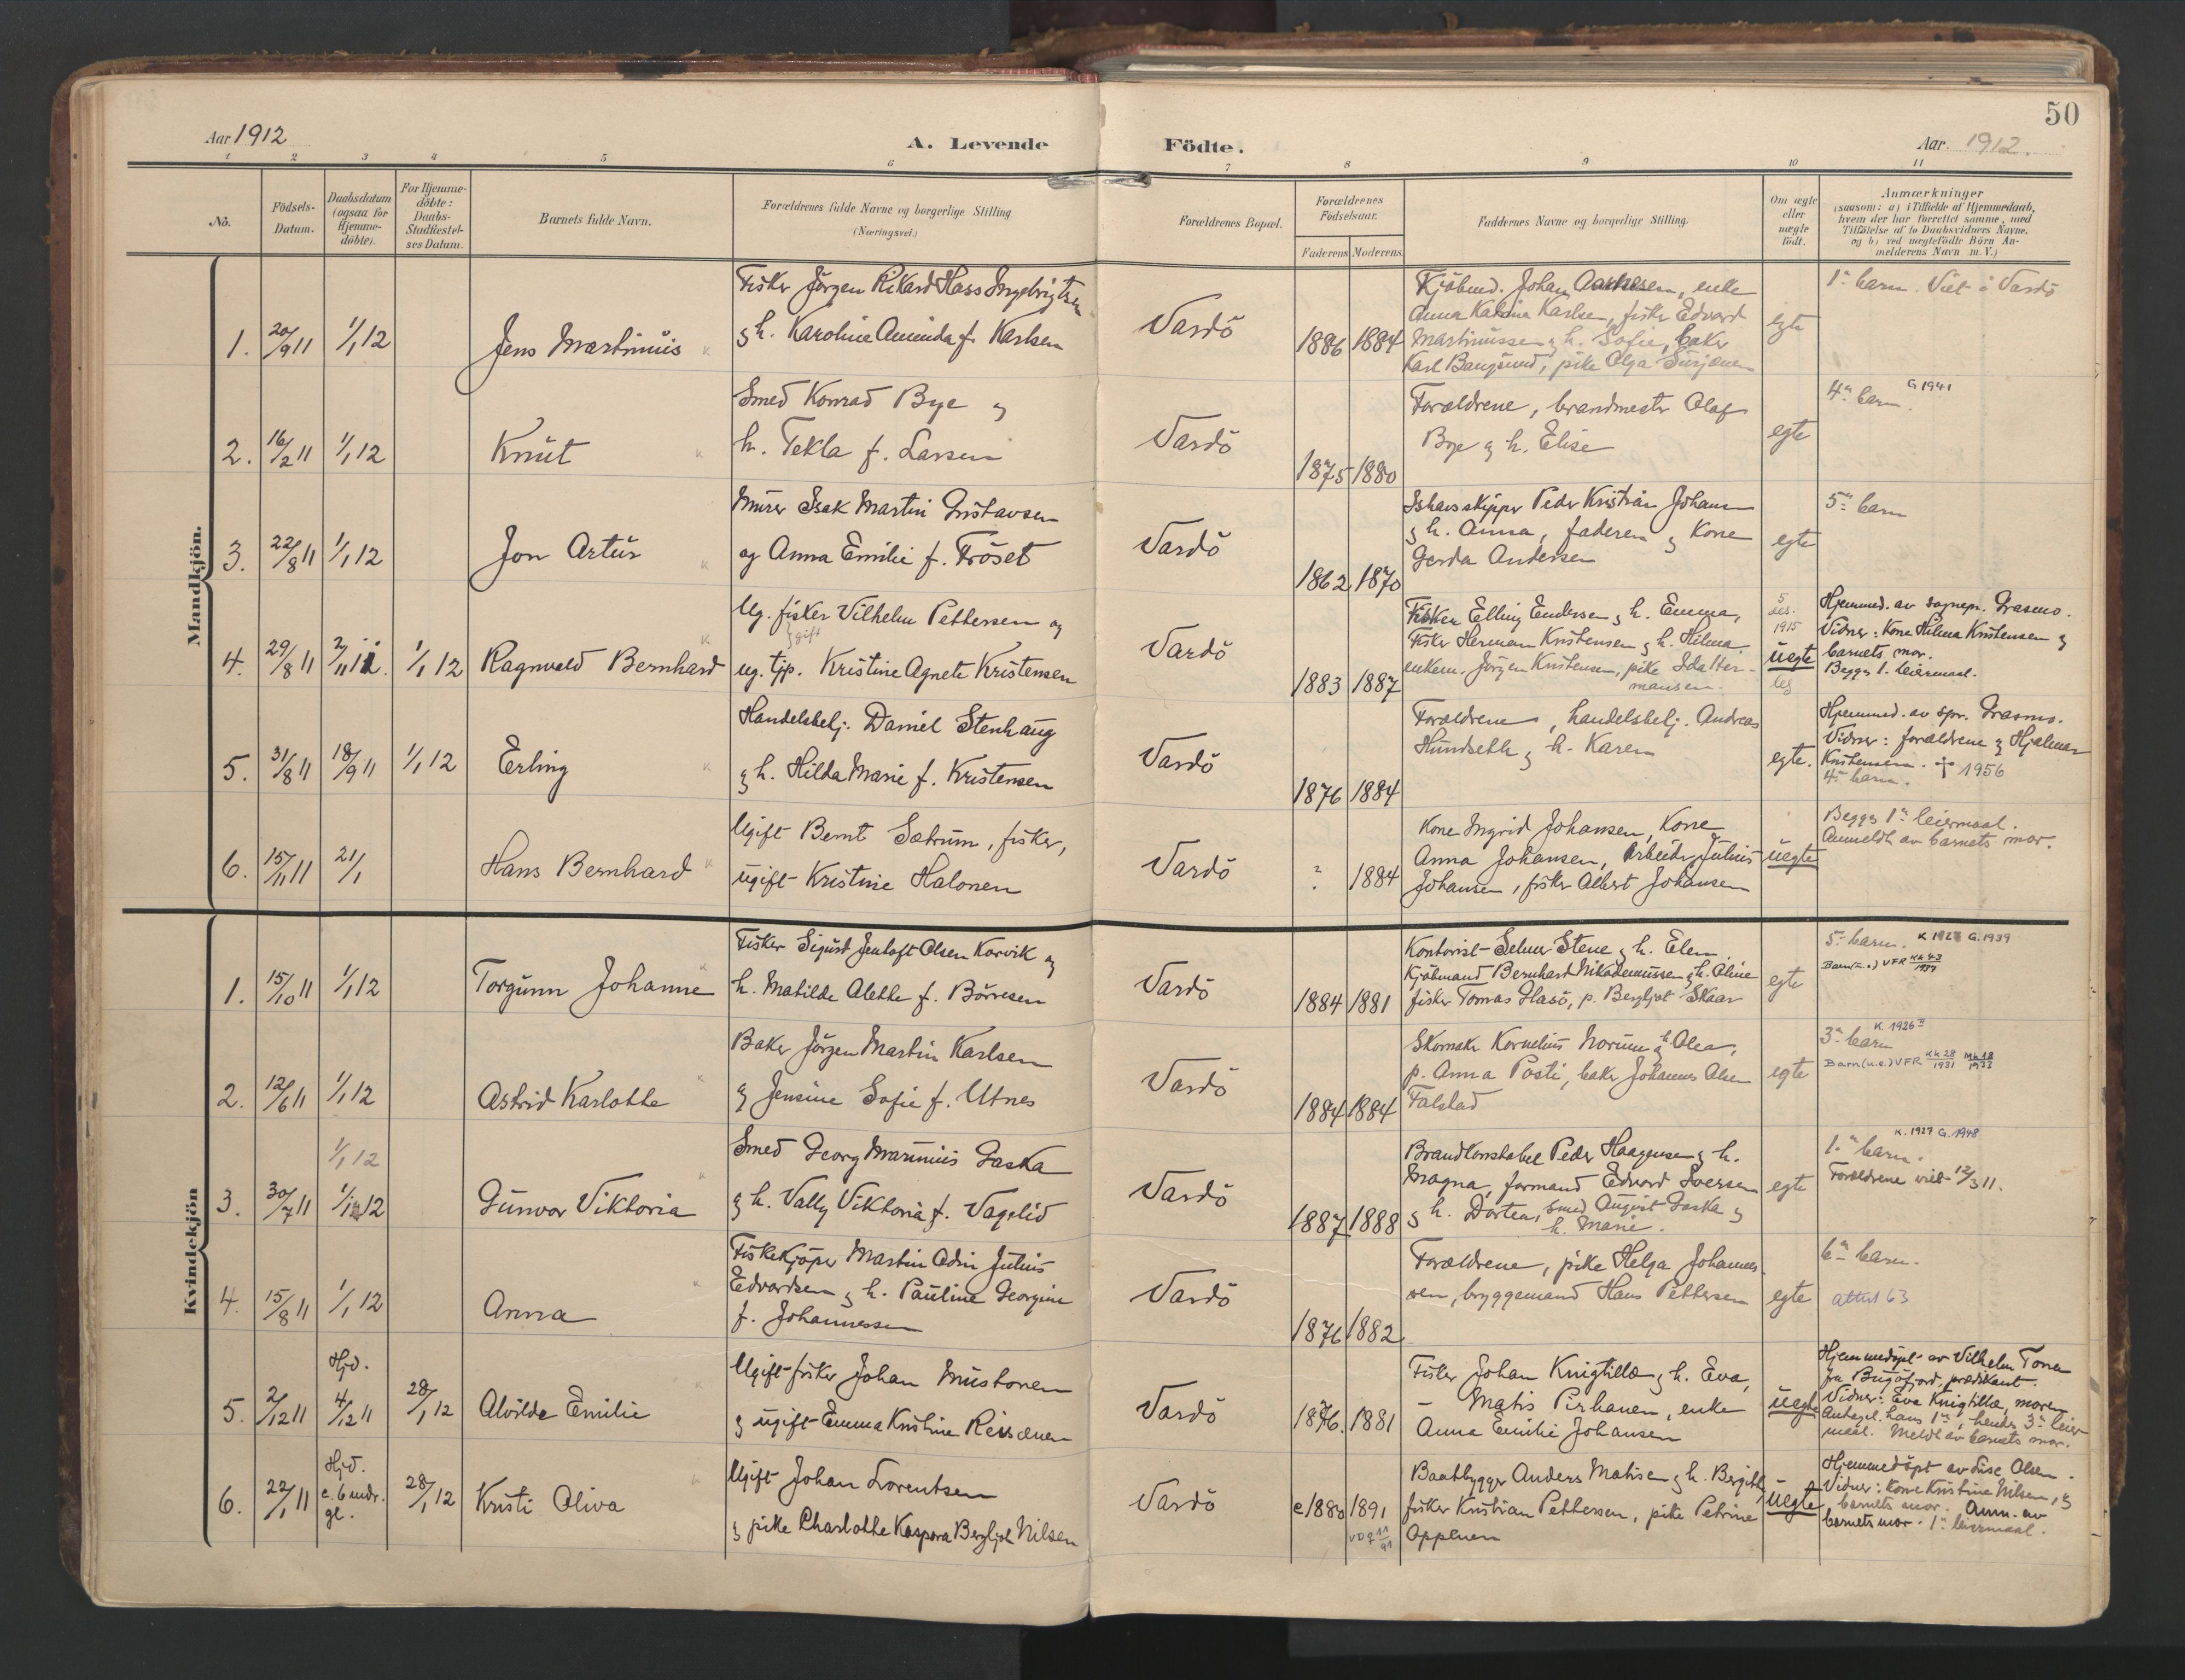 50
Aar 1912
A. Levende Födte.
Aar. 1912.
1 2 3 4 5 6 7 8 9 10 11
No.
Födsels-Datum.
Daabsdatum (ogsaa for Hjemme-döbte).
For Hjemme-döbte: Daabs-Stadfæstel-ses Datum.
Barnets fulde Navn.
Forældrenes fulde Navne og borgerlige Stilling (Næringsvei.)
Forældrenes Bopæl.
Forældrenes Födselsaar.
Faderens Moderens
Faddernes Navne og borgerlige Stilling.
Om ægte eller uægte födt.
Anmærkninger
(saasom: a) i Tilfælde af Hjemmedaab,
hvem der har forrettet samme, med
Tilföielse af to Daabsvidners Navne.
og b) ved uægtefödte Börn An-
melderens Navn m. V.)
Mandkjön.
1. 20/9 11 1/1 12 Jens Martinius
Fisker Jörgen Rikard Hass Ingebrigtsen
og h. Karoline Aminda f. Karlsen
Vardö 1886 1884
Kjöbmd. Johan, enke
Anna Karlsen, fisker Edvard
Martinussen og h. Sofie, baker
Karl Bangsund, pike Olga
egte
1ste barn. Viet i Vardö
2. 16/2 11 1/1 12 Knut
Smed Konrad Bye og
h. Tekla f. Larsen
Vardö 1875 1880
Forældrene, brandmester Olaf
Bye og h. Elise
egte
4de barn. G 1941
3. 22/8 11 1/1 12 Jon Artur
Murer Isak Martin Gustavsen
og Anna Emilie f. Fröset
Vardö 1862 1870
Ishavsskipper Peder Kristian Johansen
og h. Anna, faderen og Kone
Gerda Andersen
egte
5te barn
4. 29/8 11 2/11 11. 1/1 12 Ragnvald Bernhard
Ug. fisker Vilhelm Pettersen og
gift
ug. tjp. Kristine Agnete Kristensen
Vardö 1883 1887
Fisker Elling Endersen og h. Emma,
Fisker Herman Kristensen og h. Hilma
enkem. Jörgen Kristensen, pike Ida Her-
mansen.
5 des. 1915
uegte
leg
Hjemmed. av sognepr. Grasmo.
Vidner: Kone Hilma Kristensen og
barnets mor.
Begges 1. leiermaal.
5. 31/8 11 18/9 11 1/1 12 Erling
Handelsbetj. Daniel Stenhaug
og h. Hilda Marie f. Kristensen
Vardö 1876 1884
Forældrene, handelsbetj. Andreas
Hundseth og h. Karen
egte.
Hjemmed. av spr. Grasmo.
Vidner: forældrene og Hjalmar
Kristensen. † 1956
4de barn.
6. 15/11 11 21/1 Hans Bernhard
Ugift Bernt Sætrum, fisker,
ugift Kristine Halonen
Vardö ? 1884
Kone Ingrid Johansen, Kone
Anna Johansen, Arbeider Julius
Johansen, fisker Albert Johansen
uegte
Begges 1ste leiermaal.
Anmeldt av barnets mor.
Kvindekjön
1. 15/10 11 1/1 12 Torgunn Johanne
Fisker Sigurd Jentoft Olsen Korvik og
h. Matilde Alette f. Börresen
Vardö 1884 1881
Kontorist Selmer Stene og h. Elen
Kjöbmand Bernhard Nikodemussen og h. Oline
fisker Tomas Hasö, p. Bergljot Skaar
egte
5te barn. K 1927 G. 1939
Barn (u.e.) VFR KK 43/1937
2. 12/6 11 1/1 12 Astrid Karlotte
Baker Jörgen Martin Karlsen
og Jensine Sofie f. Utnes
Vardö 1884 1884
Skomaker Kornelius Norum og h. Olea,
p. Anna Posti, baker Johannes Olsen
Falstad
egte
3die barn K. 1926
Barn (u.e.) VFR KK 28/1931 MK 18/1933
3. 30/7 11 1/1 12
1/1 12 Gunvor Viktoria
Smed Georg Marinius Gaska
og h. Vally Viktoria f. Vagelid
Vardö 1887 1888
Brandkonstabel Peder Haagensen og h.
Magna, formand Edvard Iversen
og h. Dorten, smed August Gaska og
h. Marie.
egte
1ste barn. K. 1927 G. 1948
Forældrene viet 12/3 11.
4. 15/8 11 1/1 12 Anna
Fiskekjöper Martin Odin Julius
Edvardsen og h. Pauline Georgine
f. Johannessen
Vardö 1876 1882
Forældrene, pike Helga Johannes-
sen, bryggemand Hans Pettersen
egte
6te barn.
attest 63
5. 2/12 11 Hjd. 4/12 11 28/1 12 Alvilde Emilie
Ugift fisker Johan Mustonen
og ugift Emma Kristine Reisænen
Vardö 1876. 1881
Fisker Johan Knigtillæ og h. Eva,
Matis Pirhanen, enke
Anna Emilie Johansen
uegte
Hjemmedöpt av Vilhelm Tonen
fra Bugöfjord, prædikant.
Vidner: Eva Knigtillæ, moren
Antagel. hans 1ste, hendes 3die leier-
maal. Meldt av barnets mor.
6. 22/1 11 Hjd. c. 6 mdr. gl. 28/1 12 Kristi Oliva
Ugift Johan Lorentsen
og pike Charlotte Kaspara Bergljot Nilsen
Vardö c 1880 1891
Baatbygger Anders Matisen og h. Bergitte
fisker Kristian Pettersen, pike Petrine
Oppluen
uegte
Hjemmedöpt av Lise Olsen.
Vidner: Kone Kristine Nilsen, og
barnets mor. Anm. av
barnets mor. 1ste leiermaal.